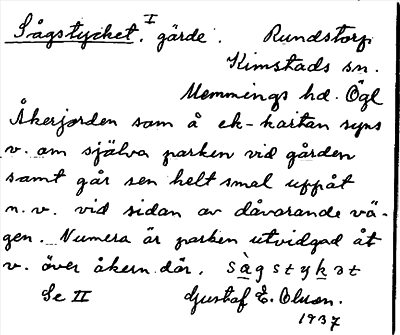 Sågstycket. I gärde. Rundstorp
Kimstads sn.
Memmings hd. Ögl
Åkerjorden som å ek-kartan syns
v. om själva parken vid gården
samt går sen helt smal uppåt
n.v. vid sidan av dåvarande vä-
gen. Numera är parken utvidgad åt
v. över åkern där. sàgstykət
Se II Gustaf E. Olson.
1937